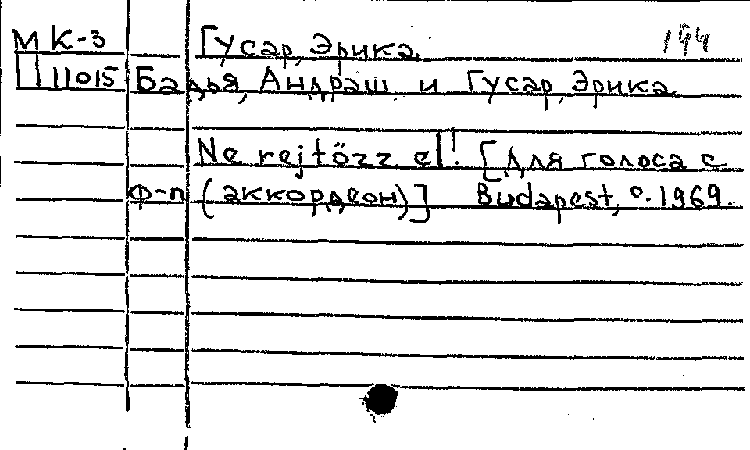 МК-3 Гусар, Эрика. 194
11015 Бадья, Андраш и Гусар, Эрика.
Ne rejtözz el! [Для голоса с
ф-п (аккордеон)] Budapest, c. 1969.